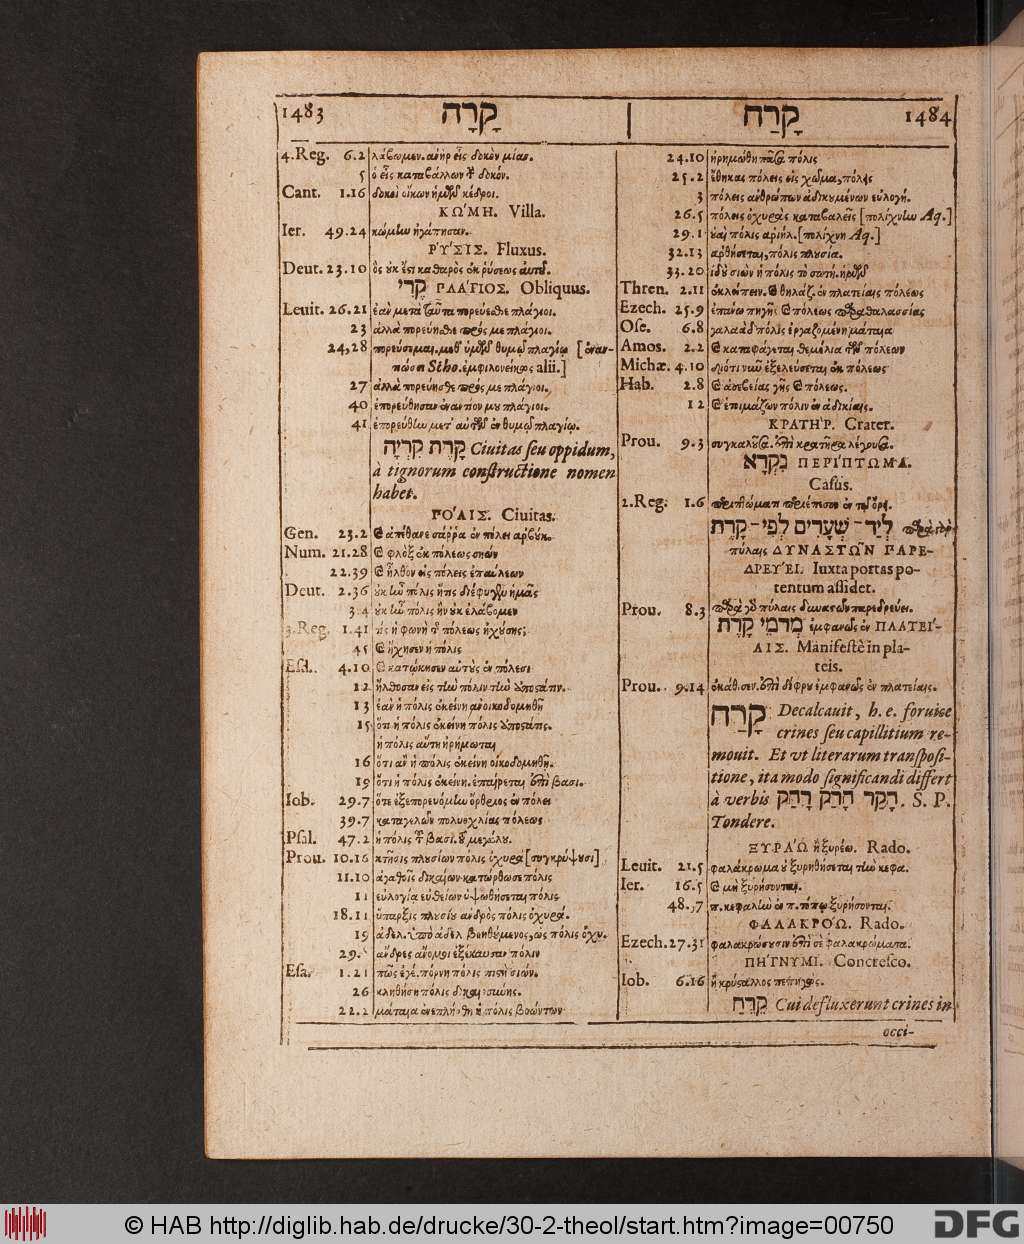 1483 קָרָה
קָרַח 1484
4.Reg. 6.2 λάβωμεν. ἀνὴρ εἷς δοκὸν μίαν.
5 ὁ εἷς καταβάλλων τὴν δοκόν.
Cant. 1.16 δοκοὶ οἴκων ἡμῶν κέδροι.
ΚΩ'ΜΗ. Villa.
Ier. 49.24 κώμην ἠγάπησαν.
ΡΥ῾ΣΙΣ. Fluxus.
Deut. 23.10 ὃς οὐκ ἔσται καθαρὸς ἐκ ῥύσεως αὐτοῦ.
קְרִי ΠΛΑ'ΓΙΟΣ. Obliquus.
Leuit. 26.21 ἐὰν μετὰ ταῦτα πορεύεσθε πλάγιοι.
23 ἀλλὰ πορεύησθε πρός με πλάγιοι.
24,28 πορεύσομαι μεθ' ὑμῶν θυμῷ πλαγίῳ
alii.]
27 ἀλλὰ πορεύησθε πρός με πλάγιοι.
40 ἐπορεύθησαν ἐναντίον μου πλάγιοι.
41 ἐπορεύθην μετ' αὐτῶν ἐν θυμῷ πλαγίῳ.
קֶרֶת קִרְיָה Ciuitas seu oppidum,
à tignorum constructione nomen
habet.
ΠΟ'ΛΙΣ. Ciuitas.
Gen. 23.2 καὶ ἀπέθανε σάῤῥα ἐν πόλει ἀρβόκ.
Num. 21.28 καὶ φλὸξ ἐκ πόλεως σηών
22.39 καὶ ἦλθον εἰς πόλεις ἐπαύλεων
Deut. 2.36 οὐκ ἦν πόλις ἥτις διέφυγεν ἡμᾶς
3.4 οὐκ ἦν πόλις ἣν οὐκ ἐλάβομεν
3.Reg. 1.41 τίς ἡ φωνὴ τῆς πόλεως ἠχούσης;
45 καὶ ἤχησεν ἡ πόλις
4.10 καὶ κατῴκησεν αὐτοὺς ἐν πόλεσι
12 ἤλθοσαν εἰς τὴν πόλιν τὴν ἀποστάτιν.
13 ἐὰν ἡ πόλις ἐκείνη ἀνοικοδομηθῇ
15 ὅτι ἡ πόλις ἐκείνη πόλις ἀποστάτις.
ἡ πόλις αὕτη ἠρήμωται
16 ὅτι ἂν ἡ πόλις ἐκείνη οἰκοδομηθῇ.
19 ὅτι ἡ πόλις ἐκείνη. ἐπαίρεται ἐπὶ βασι.
Iob. 29.7 ὅτε ἐξεπορευόμην ὄρθριος ἐν πόλει
39.7 καταγελῶν πολυοχλίας πόλεως
Psal. 47.2 ἡ πόλις τοῦ βασι. τοῦ μεγάλου.
Prou. 10.16 κτῆσις πλουσίων πόλις ὀχυρά
11.10 ἀγαθοῖς δικαίων κατώρθωσε πόλις
11 εὐλογίᾳ εὐθείων ὑψωθήσεται πόλις
18.11 ὕπαρξις πλουσίου ἀνδρὸς πόλις ὀχυρά.
19 ἀδελ. ὑπὸ ἀδελ. βοηθούμενος, ὡς πόλις ὀχυ.
29. ἄνδρες ἄνομοι ἐξέκαυσαν πόλιν
Esa. 1.21 πῶς ἐγέ. πόρνη πόλις πιστὴ σιών.
26 κληθήσῃ πόλις δικαιοσύνης.
22.2 μάταια ἐνεπλήσθη ἡ πόλις βοώντων
24.10 ἠρημώθη πᾶσα πόλις
25.2 ἔθηκας πόλεις εἰς χῶμα, πόλεις
3 πόλεις ἀνθρώπων ἀδικουμένων εὐλογή.
26.5 πόλεις ὀχυρὰς καταβαλεῖς [πολίχνην Aq.]
29.1 οὐαὶ πόλις ἀριήλ. [πολίχνη Aq.]
32.13 ἀρθήσεται, πόλις πλουσία.
33.20 ἰδοὺ σιὼν ἡ πόλις τὸ σωτή. ἡμῶν
Thren. 2.11 ἐκλείπειν. καὶ θηλάζ. ἐν πλατείαις πόλεως
Ezech. 25.9 ἐπάνω πηγῆς καὶ πόλεως παραθαλασσίας
Ose. 6.8 γαλαὰδ πόλις ἐργαζομένη μάταια
Amos. 2.2 καὶ καταφάγεται θεμέλια τῶν πόλεων
Michæ. 4.10 διότι νῦν ἐξελεύσεται ἐκ πόλεως
Hab. 2.8 καὶ ἀσεβείας γῆς καὶ πόλεως.
12 καὶ ἑτοιμάζων πόλιν ἐν ἀδικίαις.
ΚΡΑΤΗ'Ρ. Crater.
Prou. 9.3 συγκαλοῦσα. ἐπὶ κρατῆρα λέγουσα.
נִקְרָא ΠΕΡΙ'ΠΤΩΜΑ.
Casus.
2.Reg. 1.6 περιπτώματι περιέπεσον ἐν τῷ ὄρει.
לְיַד־שְׁעָרִים לְפִי־קָרֶת
πύλαις ΔΥΝΑΣΤΩ͂Ν ΠΑΡΕ-
ΔΡΕΥ'ΕΙ. Iuxta portas po-
tentum assidet.
Prou. 8.3 παρὰ γὸ πύλαις δυναστῶν παρεδρεύει.
מְרֹמֵי קָרֶת ἐμφανῶς ἐν ΠΛΑΤΕΙ'-
ΑΙΣ. Manifestè in pla-
teis.
Prou. 9.14 ἐκάθισεν. ἐπὶ δίφρου ἐμφανῶς ἐν πλατείαις.
קָרַח Decalcauit, h. e. foruice
crines seu capillitium re-
mouit. Et vt literarum transposi-
tione, ita modo significandi differt
à verbis חָקַר חָרַק רָחַק. S. P.
Tondere.
ΞΥΡΑ'Ω ἢ ξυρέω. Rado.
Leuit. 21.5 φαλάκρωμα οὐ ξυρηθήσεται τὴν κεφα.
Ier. 16.5 καὶ μὴ ξυρήσονται.
48.,7 π. κεφαλὴν ἐν π. τόπῳ ξυρήσονται.
ΦΑΛΑΚΡΟ'Ω. Rado.
Ezech. 27.31 φαλακρώσουσιν ἐπὶ σὲ φαλακρώματα.
ΠΗ'ΓΝΥΜΙ. Concresco.
Iob. 6.16 ἢ κρύσταλλος πεπηγώς.
קֵרֵחַ Cui defluxerunt crines in
occi-
© HAB http://diglib.hab.de/drucke/30-2-theol/start.htm?image=00750 DFG